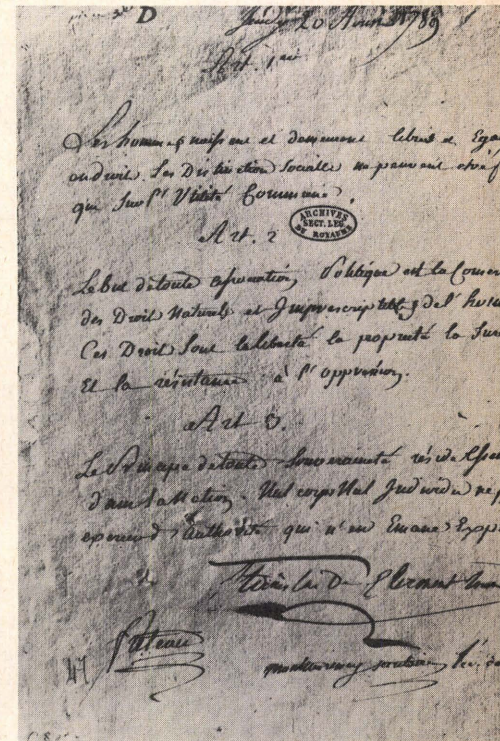 D
Jeudy 20 Aoust 1789
Art. 1er
Les hommes naissent et demeurent libres et Egau
en droit. Les Distinction Socialle ne peuvent etre f
que Sur l'Utilité Commune.
ARCHIVES
SECT. LEG.
DU ROYAUME
Art. 2
Le but de toute assosiation Politique est la Conser
des Droit Naturels et Imprescriptibles de l'homm
Ces Droit Sont la liberté la popriété la Sure
Et la résistance à l'oppression.
Art 3.
Le Principe de toute Souveraineté réside Esse
dans la Nation. Nul corps Nul Individu ne p
exercer d'authorité qui n'en Emane Exp
Stanislas De Clermont Ton
47
montmorency secretaire